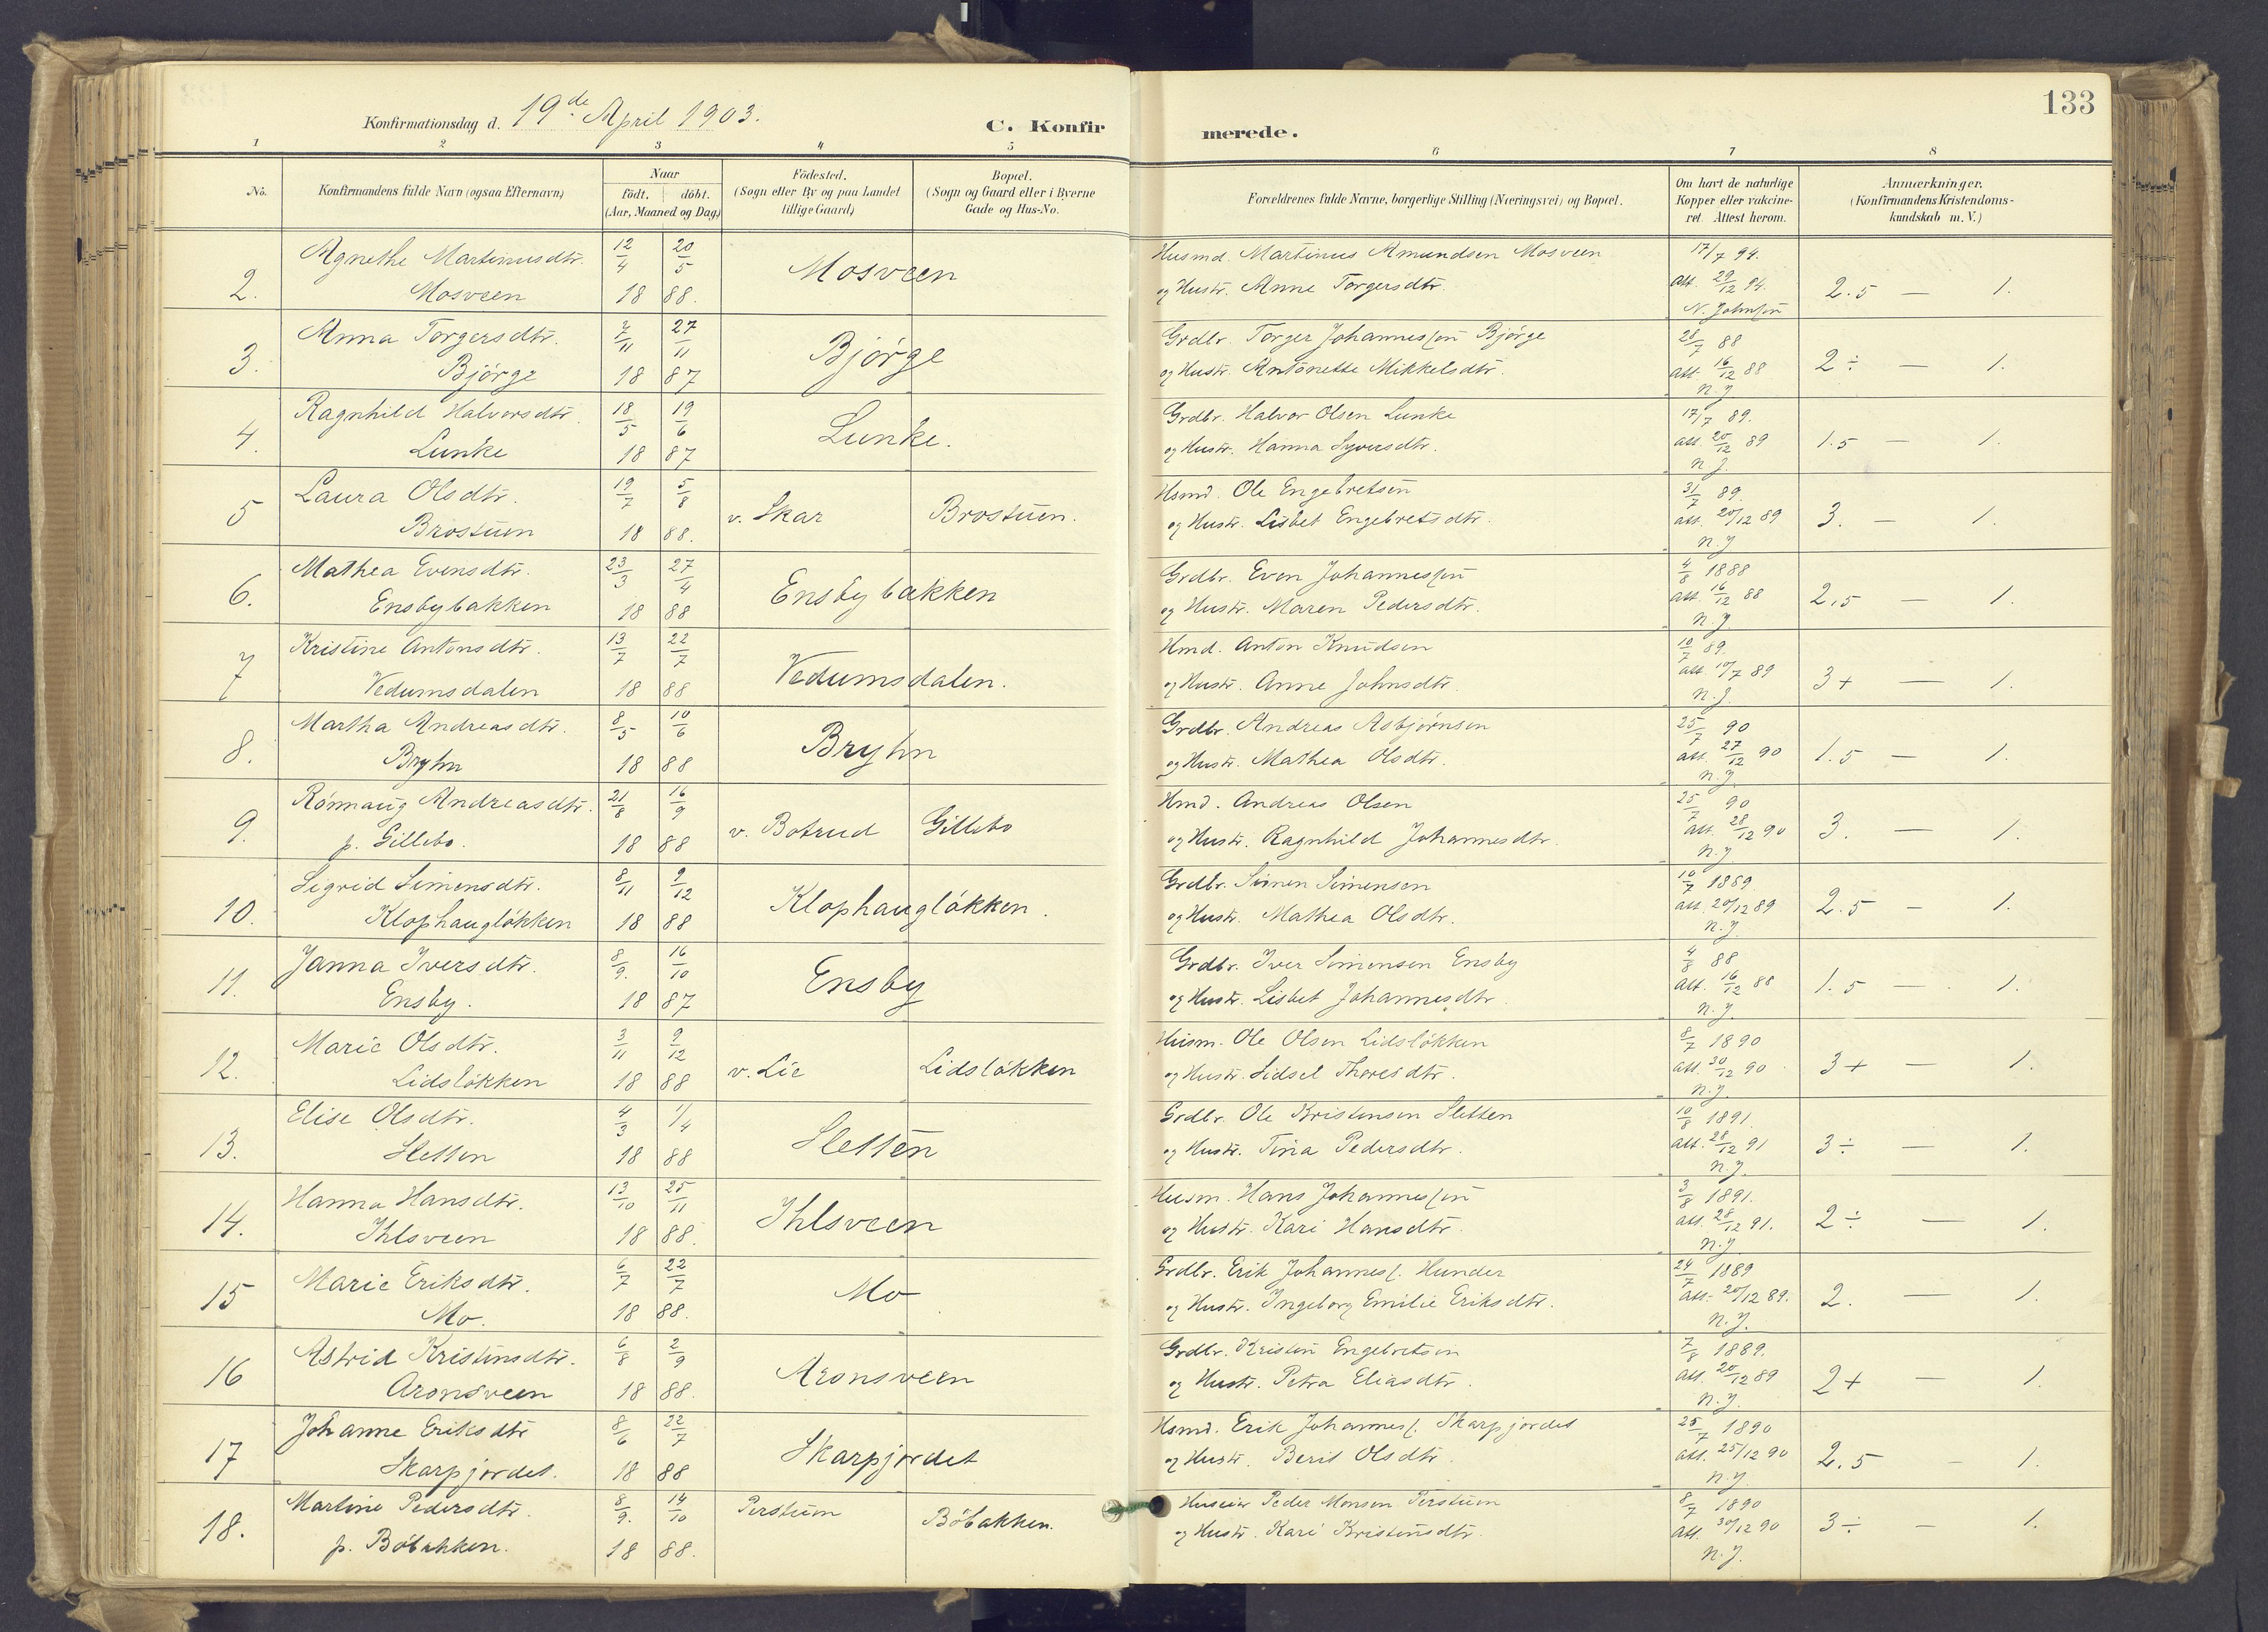 133
Konfirmationsdag d. 19de April 1903.
C. Konfir merede.
1 2 3 4 5 6 7 8
No. Konfirmandens fulde Navn (ogsaa Efternavn) Naar födt. döbt. (Aar, Maaned og Dag) Födested. (Sogn eller By og paa Landet tillige Gaard) Bopæl. (Sogn og Gaard eller i Byerne Gade og Hus-No. Forældrenes fulde Navne, borgerlige Stilling (Næringsvei) og Bopæl. Om havt de naturlige Kopper eller vakcineret. Attest herom. Anmærkninger. (Konfirmandens Kristendomskundskab m. V.)
Agnethe Martinusdtr. 12/4 20/5 Mosveen Husmd. Martinus Amundsen Mosveen 17/7 94.
2. Mosveen 18 88. og Hustr. Anne Torgersdtr. att. 29/12 94. 2.5 — 1.
N. Johnsen
Anna Torgersdtr. 2/11 27/11 Bjørge Grdbr. Torger Johannessen Bjørge 28/7 88
3. Bjørge 18 87 og Hustr. Antonette Mikkelsdtr. att. 16/12 88 2 ÷ — 1.
N. J.
Ragnhild Halvorsdtr. 18/5 19/6 Lunke. Grdbr. Halvor Olsen Lunke 17/7 89.
4. Lunke 18 87 og Hustr. Hanna Syversdtr. att. 20/12 89 1.5 — 1.
N. J.
Laura Olsdtr. 19/7 5/8 v. Skar Brostuen. Hsmd. Ole Engebretsen 31/7 89.
5 Brostuen 18 88. og Hustr. Lisbet Engebretsdtr. att. 20/12 89 3. — 1.
N. J.
Mathea Evensdtr. 23/3 27/4 Ensbybakken Grdbr. Even Johannessen 4/8 1888
6. Ensbybakken 18 88 og Hustr. Maren Pedersdtr. att. 16/12 88 2,5 — 1.
N. J.
Kristine Antonsdtr. 13/7 22/7 Vedumsdalen. Hmd. Anton Knudsen 10/7 89.
7 Vedumsdalen 18 88 og Hustr. Anne Johnsdtr. att 10/7 89 3+ — 1.
N. J.
Martha Andreasdtr. 8/5 10/6 Bryhn Grdbr. Andreas Asbjørnsen 25/7 90
8. Bryhn 18 88 og Hustr. Mathea Olsdtr. att. 27/12 90 1.5 — 1.
N. J.
Rönnaug Andreasdtr. 21/8 16/9 v. Botrud Gillebo Hmd. Andreas Olsen 25/7 90
9. p. Gillebo. 18 88 og Hustr. Ragnhild Johannesdtr. att. 28/12 90 3. — 1.
N. J.
Sigrid Simensdtr. 8/11 9/12 Klophaugløkken. Grdbr. Simen Simensen 10/7 1889
10. Klophaugløkken 18 88 og Hustr. Mathea Olsdtr. att. 20/12 89 2.5 — 1.
N. J.
Janna Iversdtr. 8/9. 16/10 Ensby Grdbr. Iver Simensen Ensby 4/8 88
11. Ensby. 18 87 og Hustr. Lisbet Johannesdtr. att. 16/12 88 1.5 — 1.
N. J.
Marie Olsdtr. 3/11 9/12 v. Lie Lidsløkken Husm. Ole Olsen Lidsløkken 8/7 1890
12. Lidsløkken 18 88 og Hustr. Sidsel Thoresdtr. att. 30/12 90 3+ — 1.
N. J.
Elise Olsdtr. 4/3 1/4 Sletten Grdbr. Ole Kristensen Sletten 10/8 1891.
13. Sletten 18 88 og Hustr. Tina Pedersdtr. att. 28/12 91 3÷ — 1.
N. J.
Hanna Hansdtr. 13/10 25/11 Ihlsveen Husm. Hans Johannessen 3/8 1891.
14. Ihlsveen 18 88. og Hustr. Kari Hansdtr. att. 28/12 91. 2÷ — 1.
N. J.
Marie Eriksdtr. 6/7 22/7 Mo Grdbr. Erik Johanness. Hunder 24/7 1889
15 Mo. 18 88. og Hustr. Ingeborg Emilie Eriksdtr. att. 20/12 89. 2. — 1.
N. J.
Astrid Kristensdtr. 6/8 2/9 Aronsveen Grdbr. Kristen Engebretsen 7/8 1889.
16 Aronsveen 18 88. og Hustr. Petra Eliasdtr. att. 20/12 89 2+ — 1.
N. J.
Johanne Eriksdtr 8/6 22/7 Skarpjordet Hsmd. Erik Johanness. Skarpjordet 25/7 1890
17 Skarpjordet. 18 88 og Hustr. Berit Olsdtr. att. 25/12 90 2.5 - 1.
N. J.
Martine Pedersdtr. 8/9. 14/10 Perstuen Bøbakken. Peder Monsen Perstuen 8/7 1890
18. p. Bøbakken. 18 88. og Hustr. Kari Kristensdtr. att. 30/12 90 3÷ — 1.
N. J.